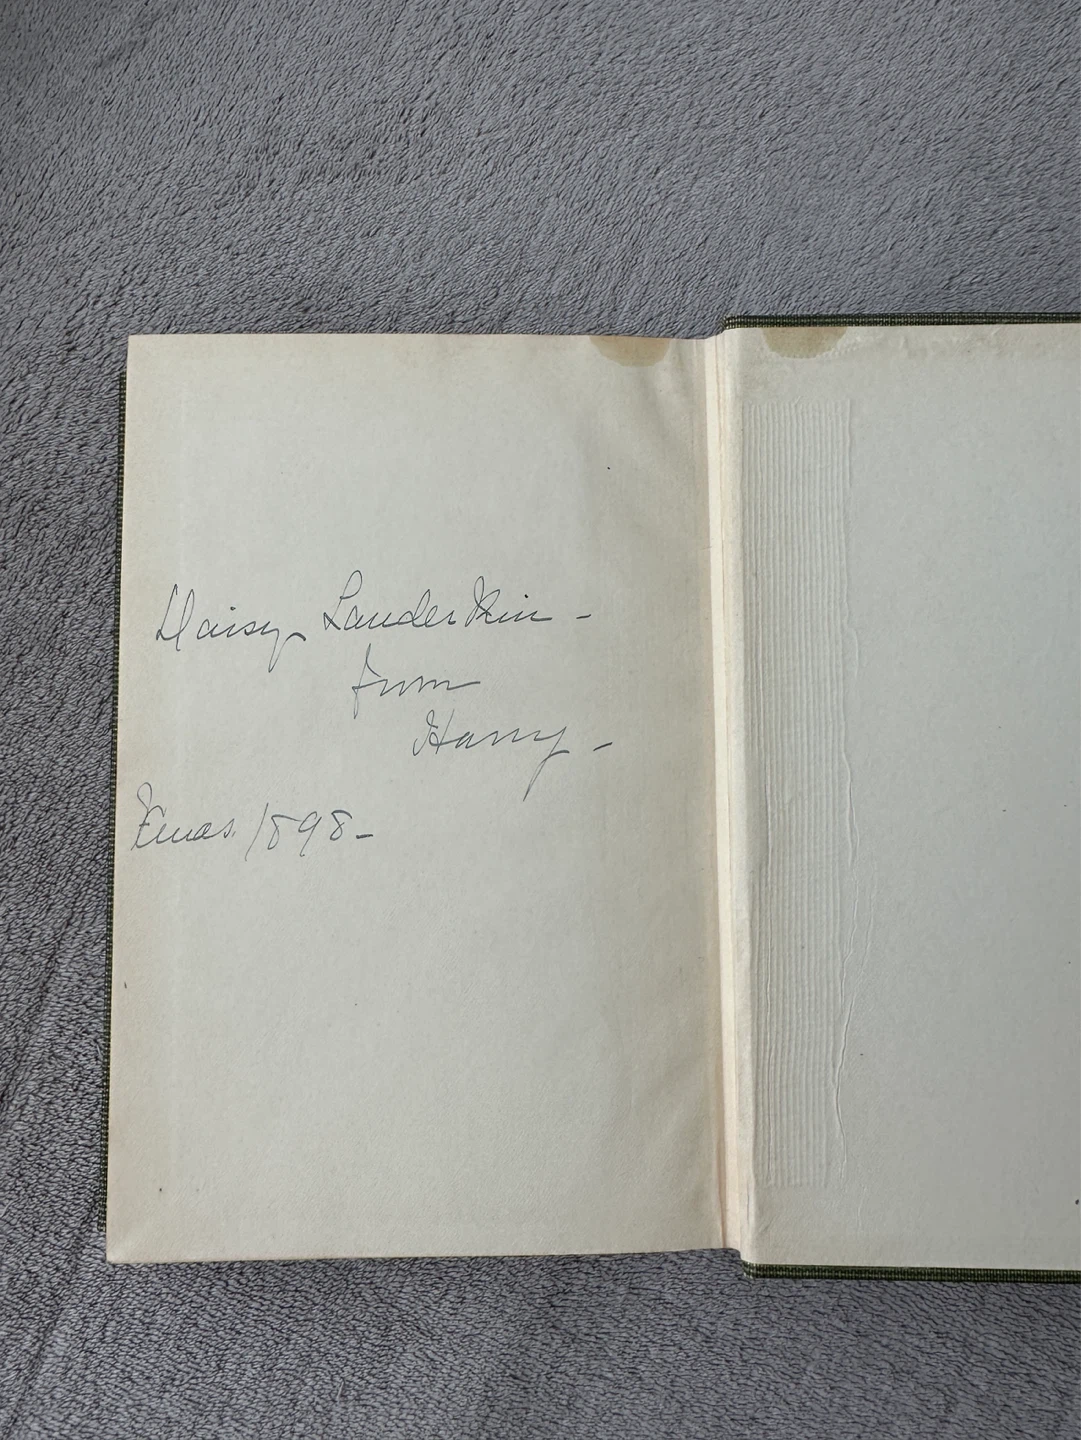 Daisy Lauderkin -
from
Harry -
Xmas. 1898 -